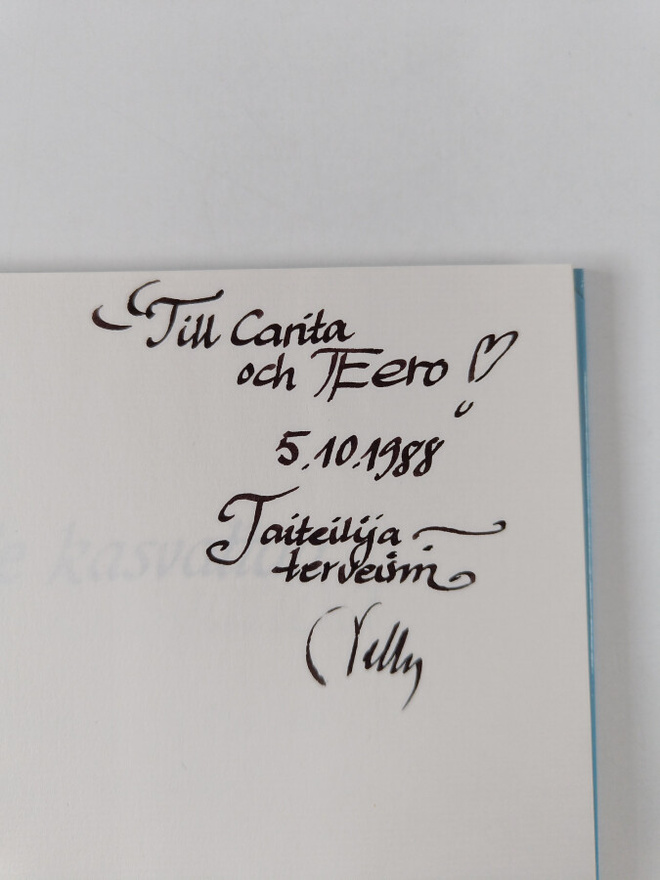 Till Carita
och TEero!
5.10.1988
Taiteilija
terveisin
kasva